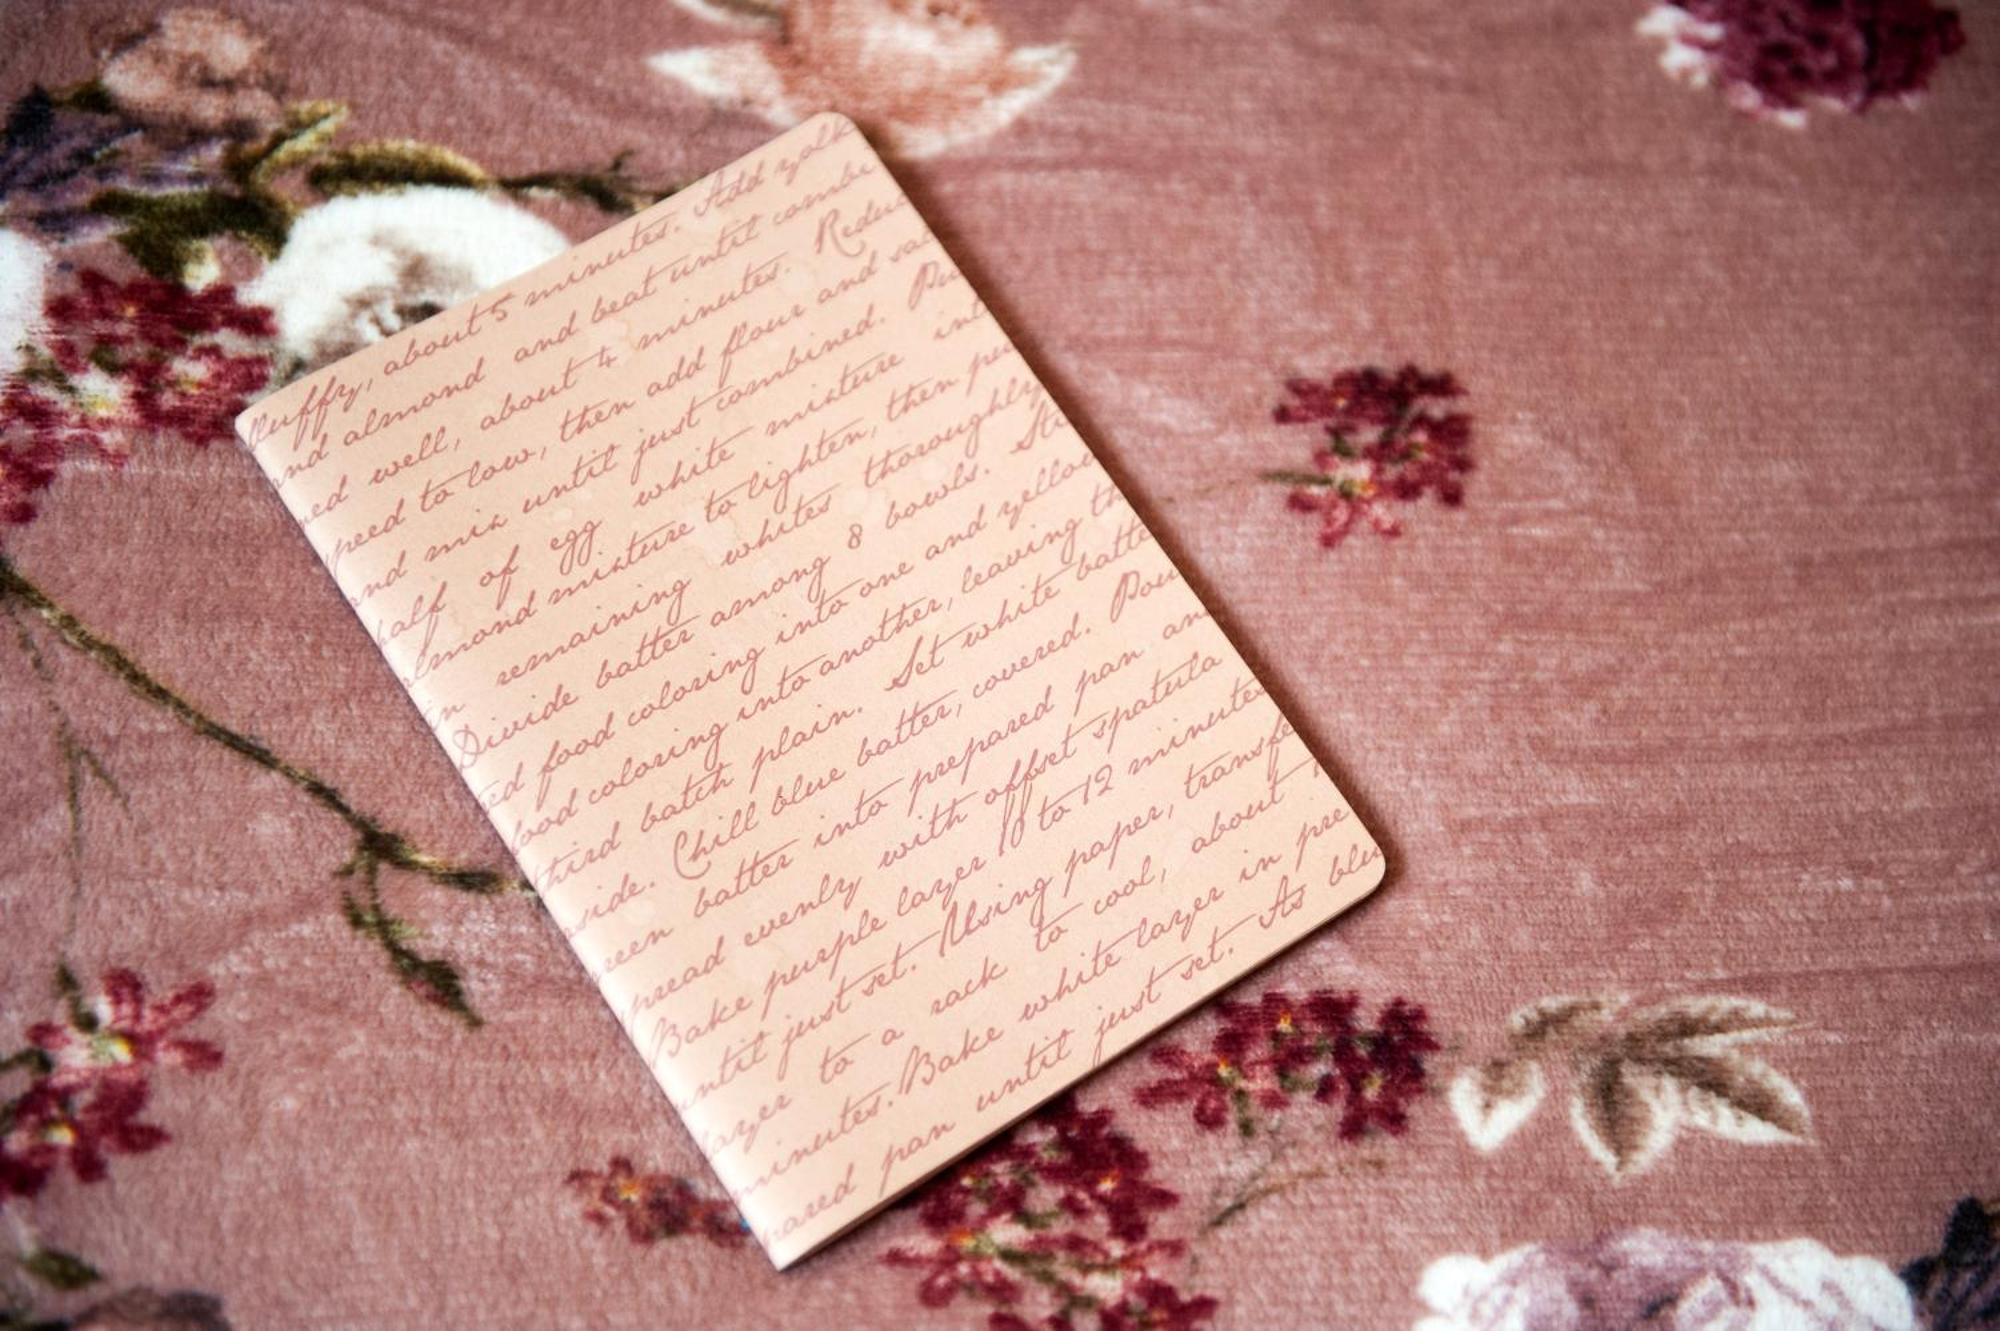 fluffy, about 5 minutes. Add yolk
nd almond and beat until combi
ned well, about 4 minutes. Redu
peed to low, then add flour and sal
and mix until just combined. Pu
half of egg white mixture int
almond mixture to lighten, then pu
in remaining whites thoroughly
Divide batter among 8 bowls. Sti
red food coloring into one and yellow
food coloring into another, leaving th
third batch plain. Set white batte
side. Chill blue batter, covered. Pou
reen batter into prepared pan an
pread evenly with offset spatula
Bake purple layer 10 to 12 minutes
until just set. Using paper, transfe
layer to a rack to cool, about
minutes. Bake white layer in pre
pared pan until just set. As blu